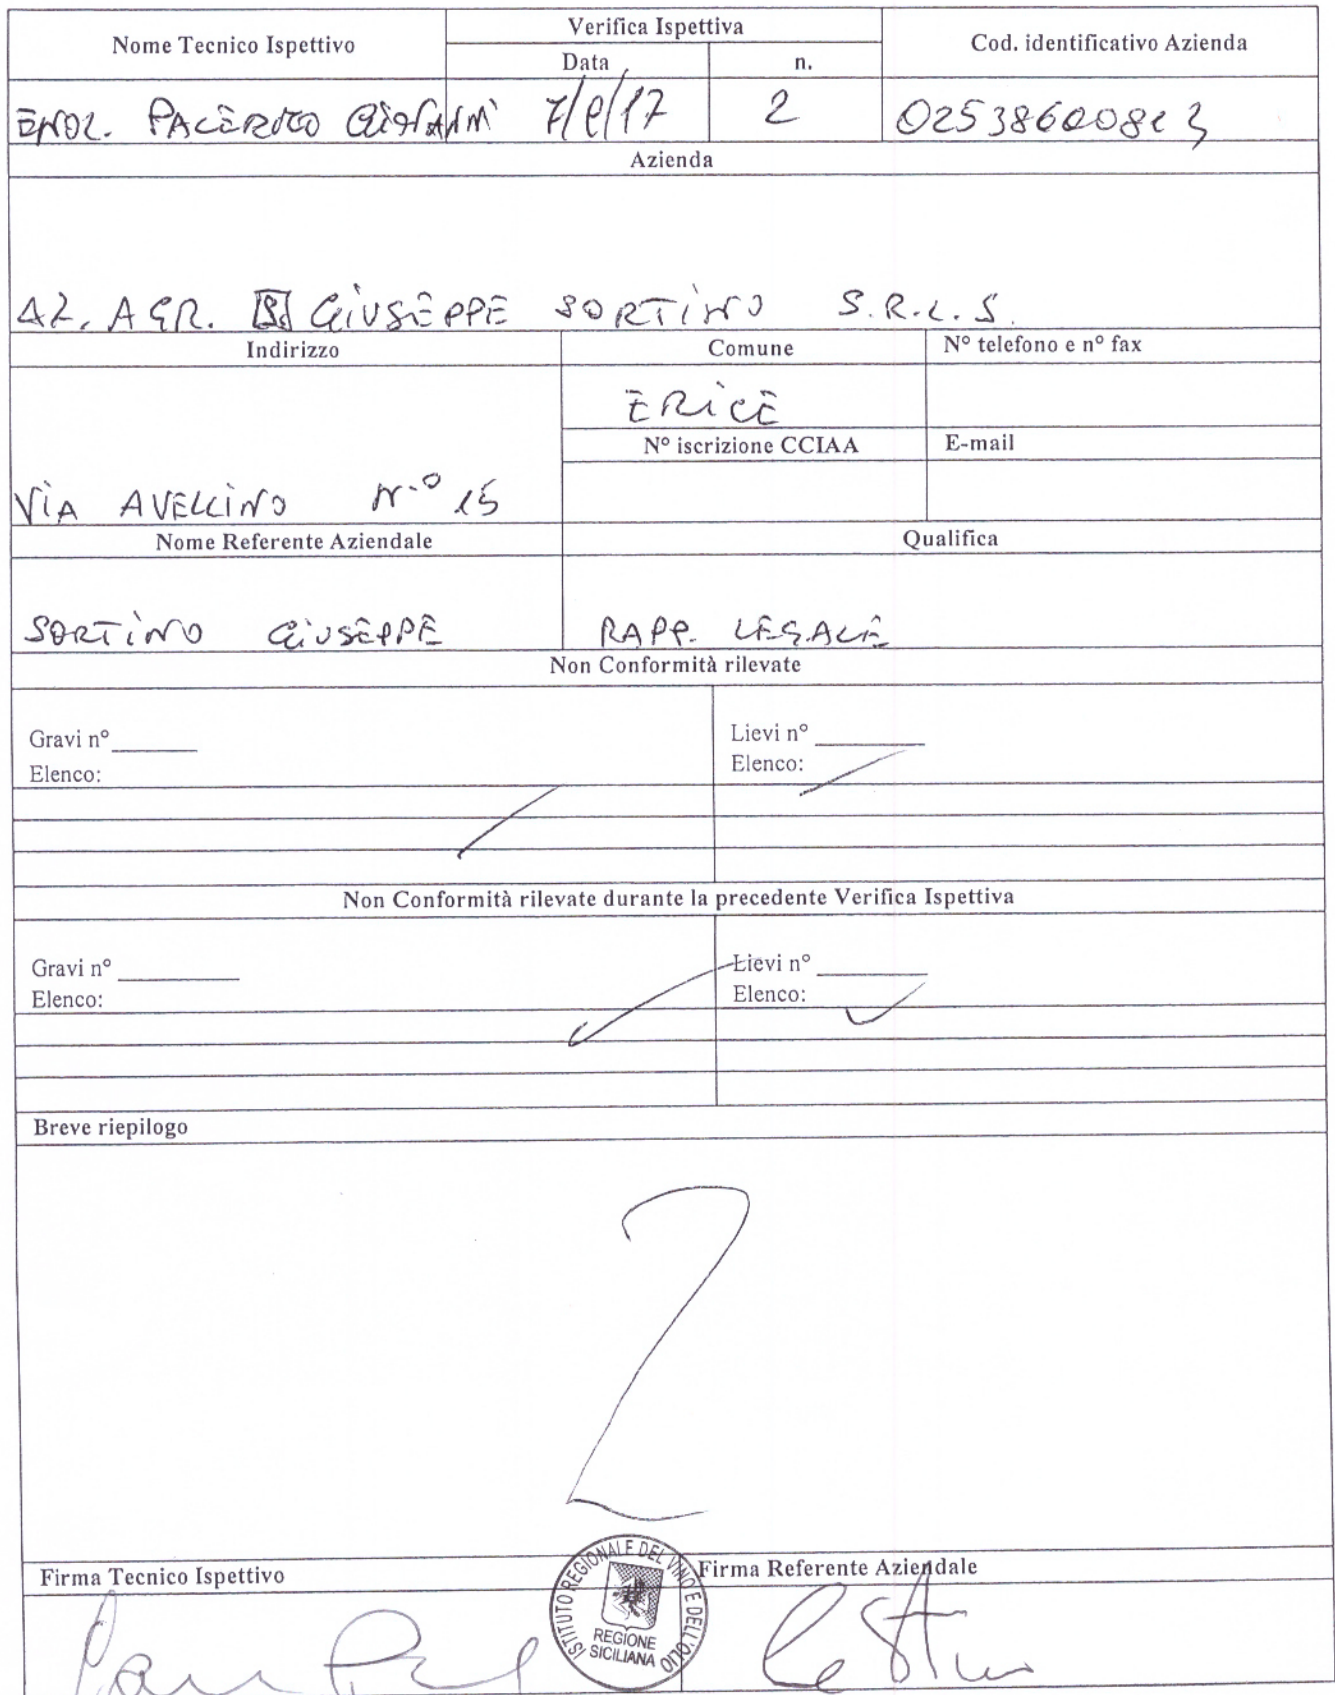 Nome Tecnico Ispettivo
Verifica Ispettiva
Cod. identificativo Azienda
Data
n.
ENOL. PALERMO GIOVANNI
2
Azienda
AZ. AGR. GIUSEPPE SORTINO S.R.L.S.
Indirizzo
Comune
N° telefono e n° fax
ERICE
N° iscrizione CCIAA
E-mail
VIA AVELLINO N.° 15
Nome Referente Aziendale
Qualifica
SORTINO GIUSEPPE
RAPP. LEGALE
Non Conformità rilevate
Gravi n°
Lievi n°
Elenco:
Elenco:
Non Conformità rilevate durante la precedente Verifica Ispettiva
Gravi n°
Lievi n°
Elenco:
Elenco:
Breve riepilogo
Firma Tecnico Ispettivo
Firma Referente Aziendale
ISTITUTO REGIONALE DEL VINO E DELL'OLIO
REGIONE
SICILIANA